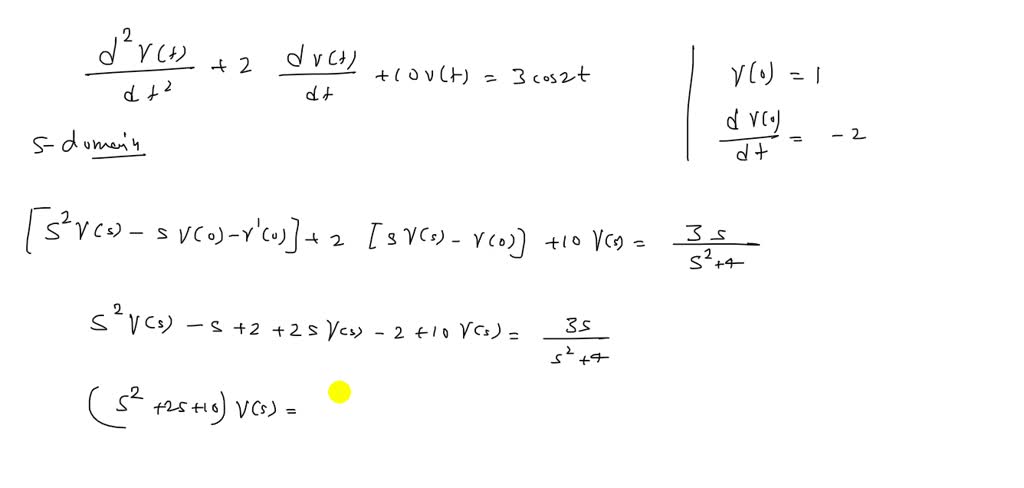 d²V(t)/dt² + 2 dv(t)/dt + 10v(t) = 3 cos2t
V(0) = 1
dV(0)/dt = -2
S-domain
[S²V(s) - sV(0) - v'(0)] + 2 [sV(s) - v(0)] + 10 V(s) = 3s/(s²+4)
S²V(s) - s + 2 + 2sV(s) - 2 + 10V(s) = 3s/(s²+4)
(S² + 2s + 10) V(s) =